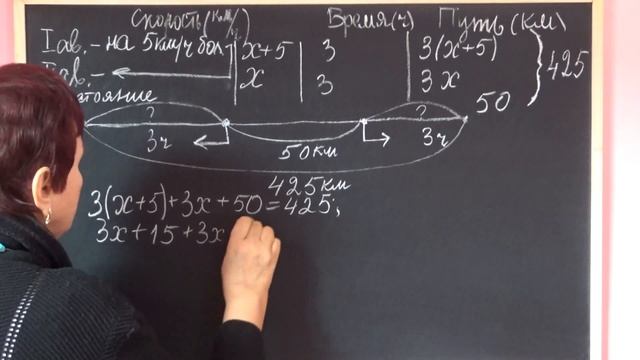 Скорость (км/ч) Время (ч) Путь (км)
I ав. - на 5 км/ч бол- x+5 3 3(x+5)
ав. - x 3 3x 425
50
? ?
3ч 50 км 3ч
425 км
3(x+5)+3x+50=425;
3x+15+3x